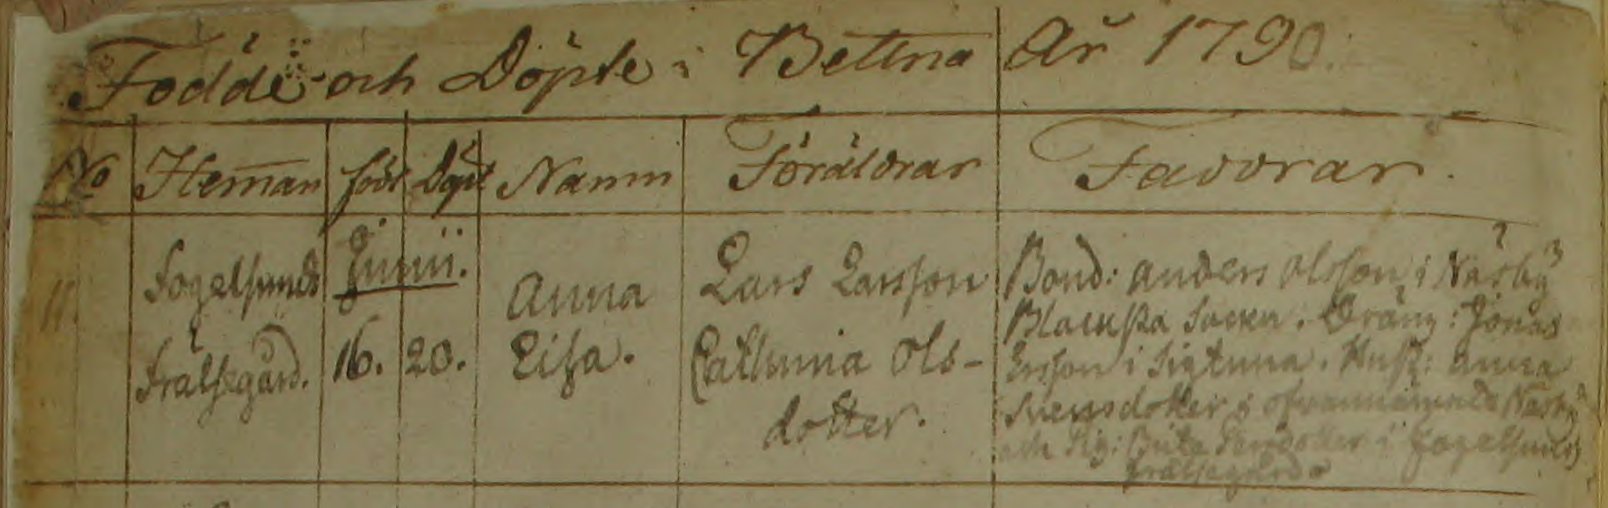 Födde och Döpte i Bettna År 1790.
No Heman född Döpt Namn Föräldrar Faddrar.
11. Fogelsunds Frälsegård.
Junii.
16. 20.
Anna
Lisa.
Lars Larsson
Cathrina Ols-
dotter.
Bond: Anders Olsson i Näsby
Blacksta Socken. Dräng: Jonas
Ersson i Sigtuna. Hust: Anna
Svensdotter i ofvannämnde Näsby
och Pig: Brita dotter i Fogelsunds
frälsegård.